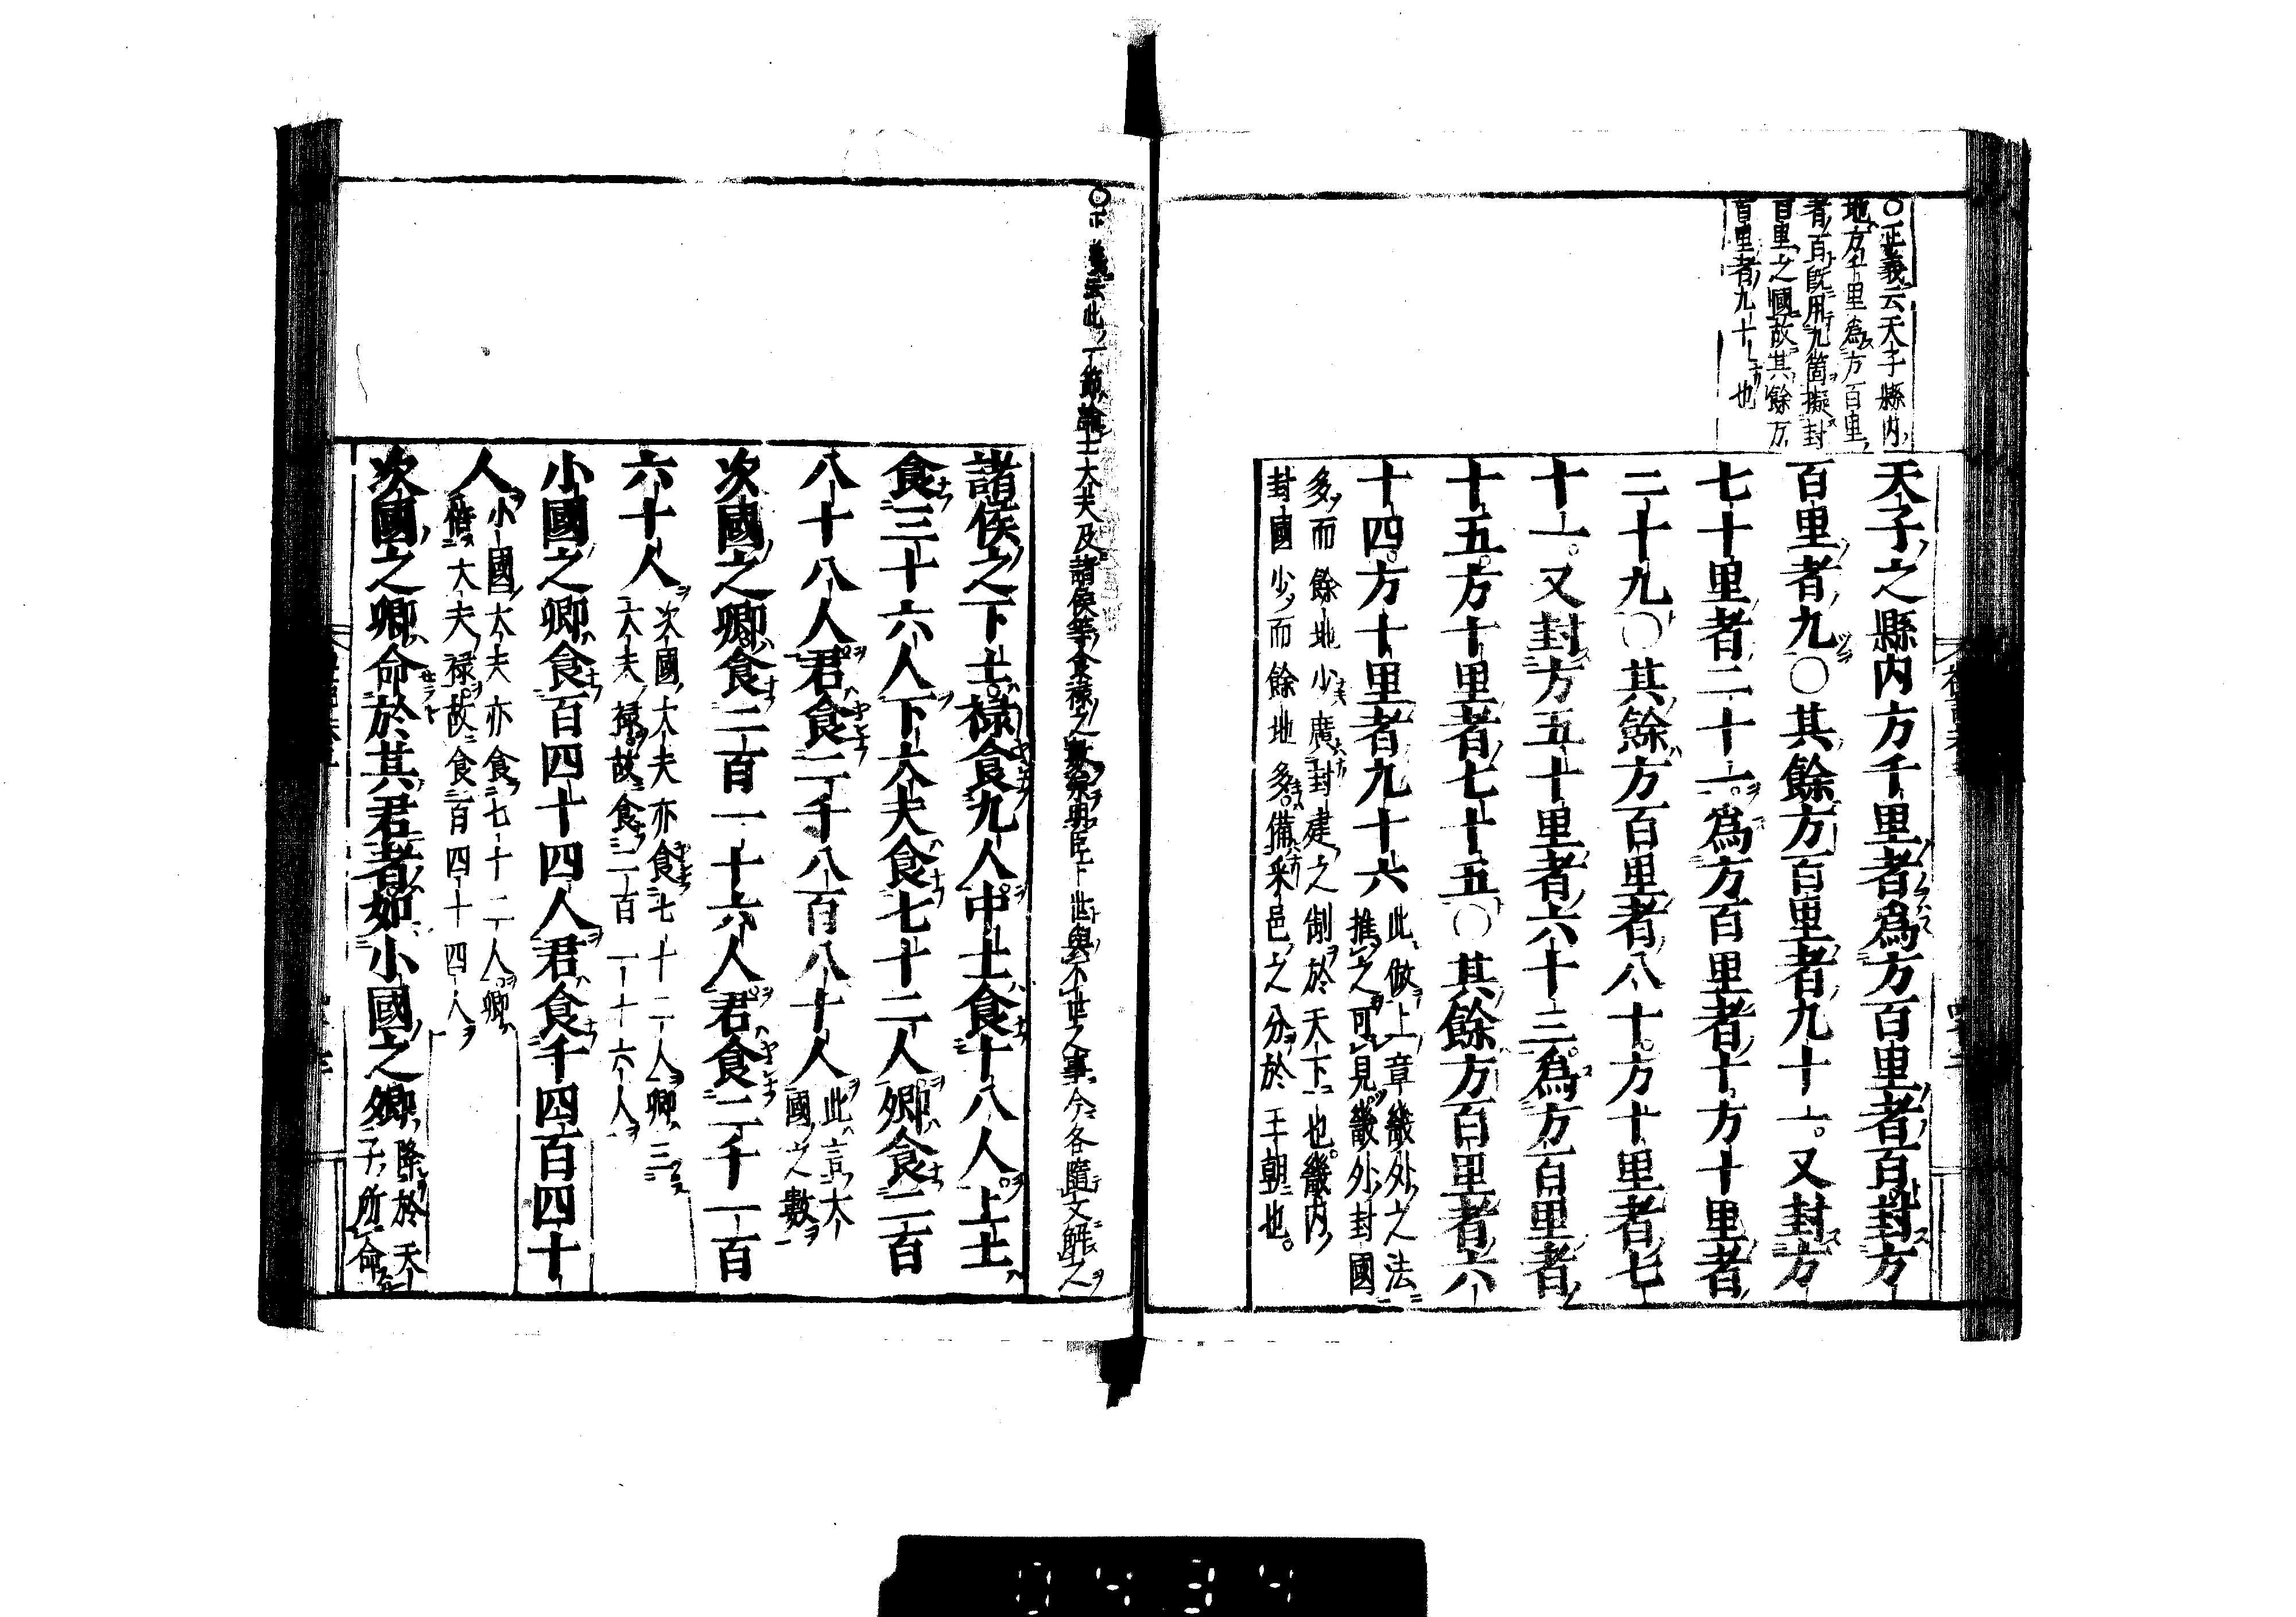 ○正義云天子縣内
地方千里爲方百里
者百既用九箇擬封
百里之國故其餘方
百里者九十一也
天子之縣内方千里者爲方百里者百封方
百里者九○其餘方百里者九十一。又封方
七十里者二十一。爲方百里者十。方十里者
二十九○其餘方百里者八十。方十里者七
十一。又封方五十里者六十三。爲方百里者
十五。方十里者七十五○其餘方百里者六
十四。方十里者九十六
此倣上章畿外之法
推之可見畿外封國
多而餘地少廣封建之制於天下也。畿内
封國少而餘地多。備采邑之分於王朝也。
○正義云此一節論士大夫及諸侯等食祿之數并明臣下世與不世之事今各隨文觧之
諸侯之下士祿食九人中士食十八人上士
食三十六人下大夫食七十二人卿食二百
八十八人君食二千八百八十人
此言大
國之數
次國之卿食二百一十六人君食二千一百
六十人
次國大夫亦食七十二人卿三
大夫祿故食二百一十六人
小國之卿食百四十四人君食千四百四十
人
小國大夫亦食七十二人卿
倍大夫祿故食百四十四人
次國之卿命於其君者如小國之卿
降於天
子所命